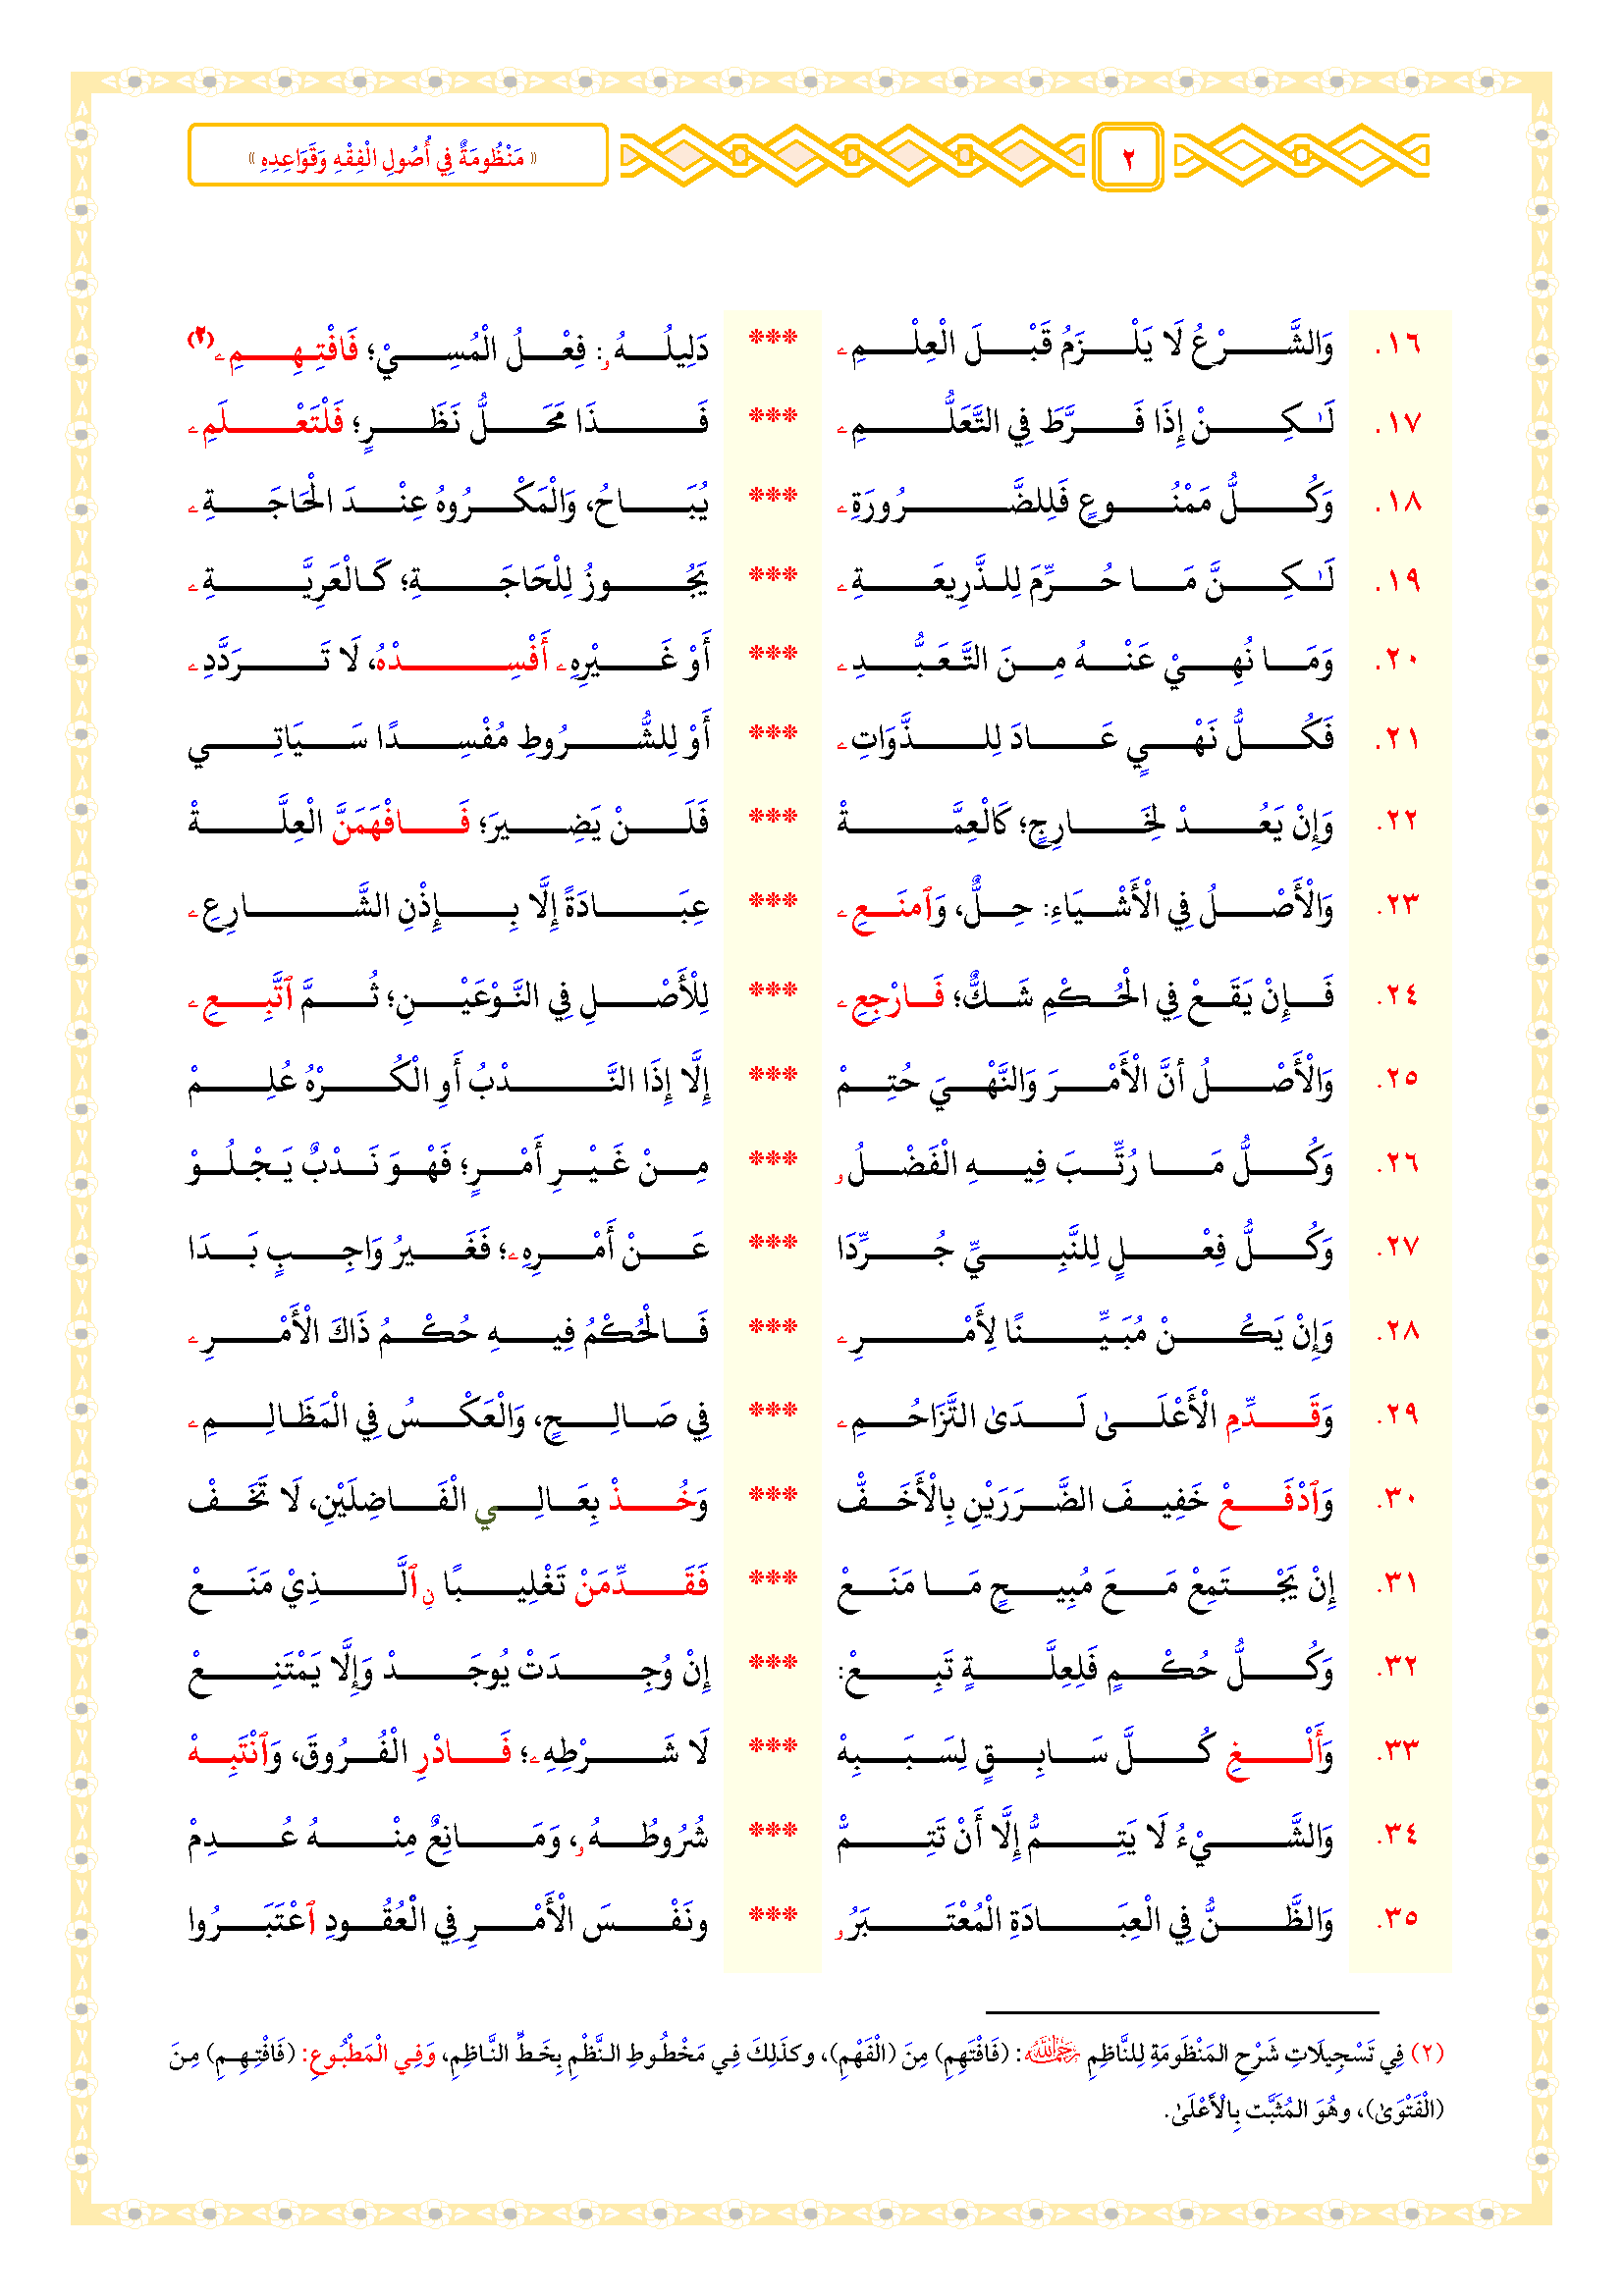 ٢ « مَنْظُومَةٌ فِي أُصُولِ الْفِقْهِ وَقَوَاعِدِهِ »
١٦. وَالشَّرْعُ لَا يَلْزَمُ قَبْلَ الْعِلْمِے *** دَلِيلُهُۥ: فِعْلُ الْمُسِيْ؛ فَافْتِهِمِے(٢)
١٧. لَـٰكِنْ إِذَا فَرَّطَ فِي التَّعَلُّمِے *** فَذَا مَحَلُّ نَظَرٍ؛ فَلْتَعْلَمِے
١٨. وَكُلُّ مَمْنُوعٍ فَلِلضَّرُورَةِے *** يُبَاحُ، وَالْمَكْرُوهُ عِنْدَ الْحَاجَةِے
١٩. لَـٰكِنَّ مَا حُرِّمَ لِلذَّرِيعَةِے *** يَجُوزُ لِلْحَاجَةِ؛ كَالْعَرِيَّةِے
٢٠. وَمَا نُهِيْ عَنْهُ مِنَ التَّعَبُّدِے *** أَوْ غَيْرِهِے أَفْسِدْهُ، لَا تَرَدَّدِے
٢١. فَكُلُّ نَهْيٍ عَادَ لِلذَّوَاتِے *** أَوْ لِلشُّرُوطِ مُفْسِدًا سَيَاتِي
٢٢. وَإِنْ يَعُدْ لِخَارِجٍ؛ كَالْعِمَّةْ *** فَلَنْ يَضِيرَ؛ فَافْهَمَنَّ الْعِلَّةْ
٢٣. وَالْأَصْلُ فِي الْأَشْيَاءِ: حِلٌّ، وَٱمنَعِے *** عِبَادَةً إِلَّا بِإِذْنِ الشَّارِعِے
٢٤. فَإِنْ يَقَعْ فِي الْحُكْمِ شَكٌّ؛ فَارْجِعِے *** لِلْأَصْلِ فِي النَّوْعَيْنِ؛ ثُمَّ ٱتَّبِعِے
٢٥. وَالْأَصْلُ أنَّ الْأَمْرَ وَالنَّهْيَ حُتِمْ *** إِلَّا إِذَا النَّدْبُ أَوِ الْكُرْهُ عُلِمْ
٢٦. وَكُلُّ مَا رُتِّبَ فِيهِ الْفَضْلُۥ *** مِنْ غَيْرِ أَمْرٍ؛ فَهْوَ نَدْبٌ يَجْلُوْ
٢٧. وَكُلُّ فِعْلٍ لِلنَّبِيِّ جُرِّدَا *** عَنْ أَمْرِهِے؛ فَغَيرُ وَاجِبٍ بَدَا
٢٨. وَإِنْ يَكُنْ مُبَيِّنًا لِأَمْرِے *** فَالْحُكْمُ فِيهِ حُكْمُ ذَاكَ الْأَمْرِے
٢٩. وَقَدِّمِ الْأَعْلَىٰ لَدَىٰ التَّزَاحُمِے *** فِي صَالِحٍ، وَالْعَكْسُ فِي الْمَظَالِمِے
٣٠. وَٱدْفَعْ خَفِيفَ الضَّرَرَيْنِ بِالْأَخَفّْ *** وَخُذْ بِعَالِي الْفَاضِلَيْنِ، لَا تَخَفْ
٣١. إِنْ يَجْتَمِعْ مَعَ مُبِيحٍ مَا مَنَعْ *** فَقَدِّمَنْ تَغْلِيبًا نِ ٱلَّذِيْ مَنَعْ
٣٢. وَكُلُّ حُكْمٍ فَلِعِلَّةٍ تَبِعْ: *** إِنْ وُجِدَتْ يُوجَدْ وَإِلَّا يَمْتَنِعْ
٣٣. وَأَلْغِ كُلَّ سَابِقٍ لِسَبَبِهْ *** لَا شَرْطِهِے؛ فَادْرِ الْفُرُوقَ، وَٱنْتَبِهْ
٣٤. وَالشَّيْءُ لَا يَتِمُّ إِلَّا أَنْ تَتِمّْ *** شُرُوطُهُۥ، وَمَانِعٌ مِنْهُ عُدِمْ
٣٥. وَالظَّنُّ فِي الْعِبَادَةِ الْمُعْتَبَرُۥ *** ونَفْسَ الْأَمْرِ فِي الْعُقُودِ ٱعْتَبَرُوا
(٢) فِي تَسْجِيلَاتِ شَرْحِ المَنْظَومَةِ لِلنَّاظِمِ رَحِمَهُ اللهُ: (فَافْتَهِمِ) مِنَ (الْفَهْمِ)، وكذَلِكَ فِي مَخْطُوطِ النَّظْمِ بِخَطِّ النَّاظِمِ، وَفِي الْمَطْبُوعِ: (فَافْتِهِمِ) مِنَ
(الْفَتْوَىٰ)، وهُوَ المُثَبَّت بِالْأَعْلَىٰ.